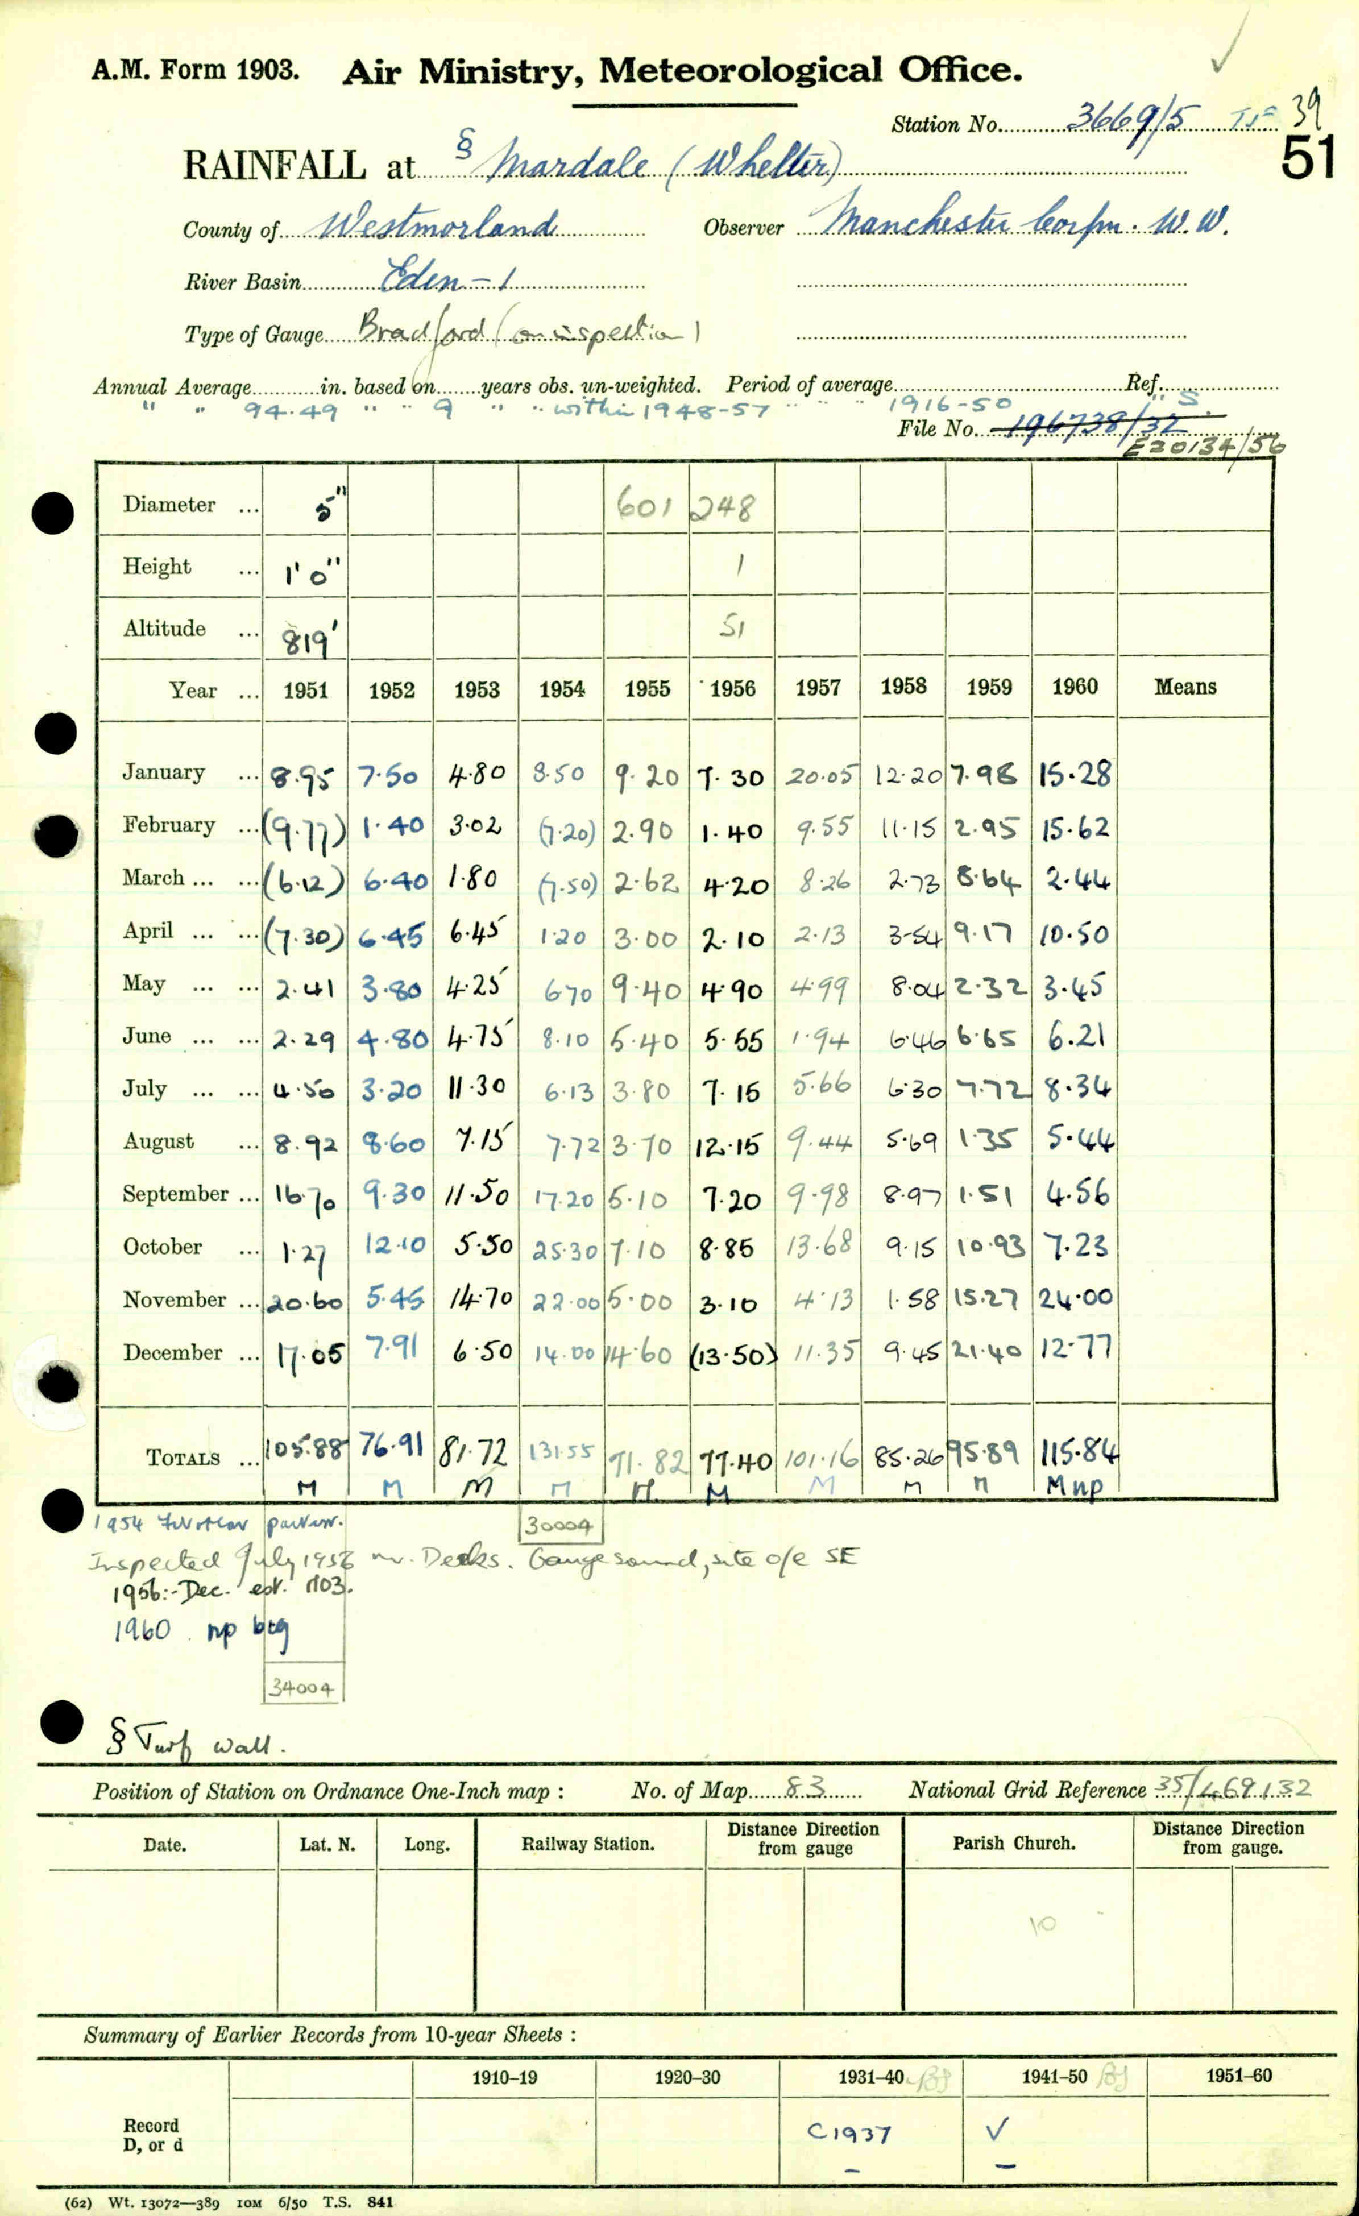 A.M. Form 1903. Air Ministry, Meteorological Office.
Station No. 3669/5 39
51
RAINFALL at § Mardale (Whelter)
County of Westmorland Observer Manchester Corpn. W.W.
River Basin Eden-1
Type of Gauge Bradford (on inspection)
Annual Average in. based on years obs. un-weighted. Period of average Ref.
" " 94.49 " " 9 " " within 1948-57 " " " 1916-50 " S.
File No. 196738/32
E20134/56
Diameter ... 5" 601 248
Height ... 1'0" 1
Altitude ... 819' 51
Year ... 1951 1952 1953 1954 1955 1956 1957 1958 1959 1960 Means
January ... 8.95 7.50 4.80 8.50 9.20 7.30 20.05 12.20 7.98 15.28
February ... (9.77) 1.40 3.02 (7.20) 2.90 1.40 9.55 11.15 2.95 15.62
March ... ... (6.12) 6.40 1.80 (7.50) 2.62 4.20 8.26 2.73 8.64 2.44
April ... ... (7.30) 6.45 6.45 1.20 3.00 2.10 2.13 3.54 9.17 10.50
May ... ... 2.41 3.80 4.25 6.70 9.40 4.90 4.99 8.04 2.32 3.45
June ... ... 2.29 4.80 4.75 8.10 5.40 5.55 1.94 6.46 6.65 6.21
July ... ... 4.50 3.20 11.30 6.13 3.80 7.15 5.66 6.30 7.72 8.34
August ... 8.92 8.60 7.15 7.72 3.70 12.15 9.44 5.69 1.35 5.44
September ... 16.70 9.30 11.50 17.20 5.10 7.20 9.98 8.97 1.51 4.56
October ... 1.27 12.10 5.50 25.30 7.10 8.85 13.68 9.15 10.93 7.23
November ... 20.60 5.45 14.70 22.00 5.00 3.10 4.13 1.58 15.27 24.00
December ... 17.05 7.91 6.50 14.00 14.60 (13.50) 11.35 9.45 21.40 12.77
TOTALS ... 105.88 76.91 81.72 131.55 71.82 77.40 101.16 85.26 95.89 115.84
M M M M M M M M M M np
1954
30004
Inspected July 1956 Mr. Deeks. Gauge sound, site o/e SE
1956:- Dec. est. MO3.
1960 np btg
34004
§ Turf wall.
Position of Station on Ordnance One-Inch map : No. of Map 83 National Grid Reference 35/469132
Date. Lat. N. Long. Railway Station. Distance from Direction gauge Parish Church. Distance from Direction gauge.
10
Summary of Earlier Records from 10-year Sheets :
1910–19 1920–30 1931–40 1941–50 1951–60
Record D, or d C1937 ✓
– –
(62) Wt. 13072—389 10M 6/50 T.S. 841